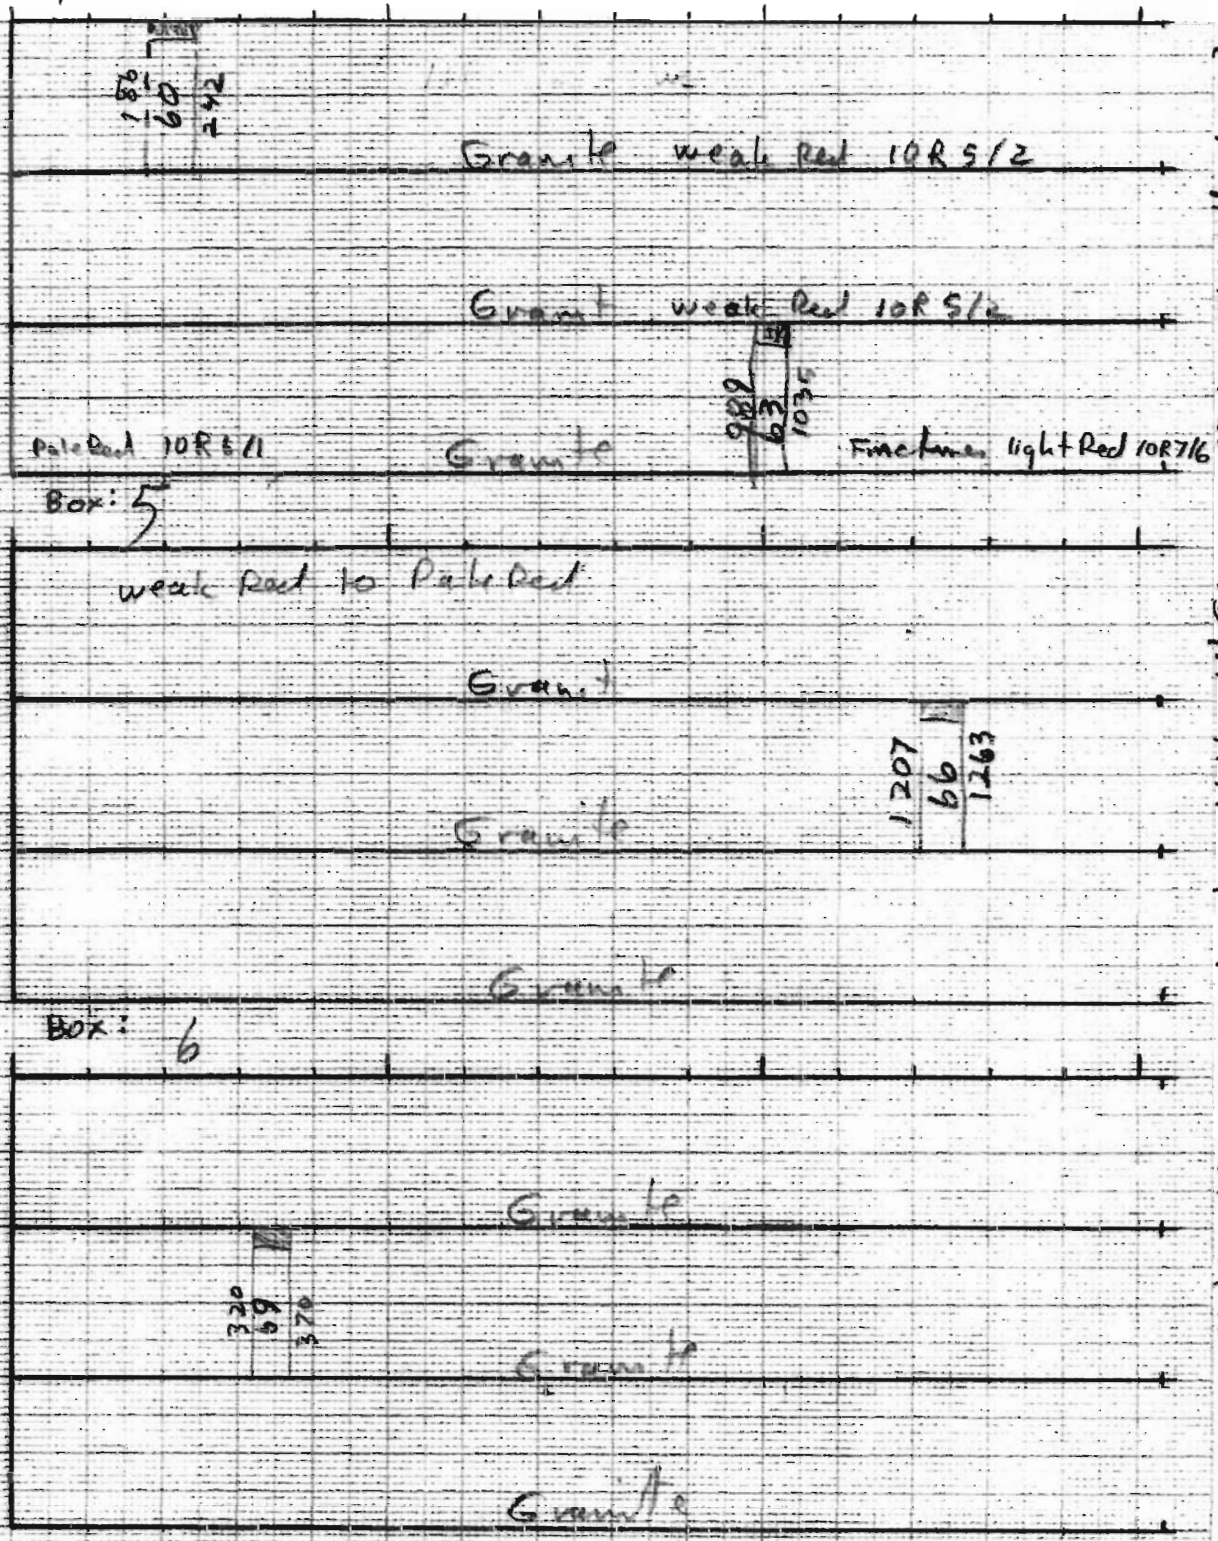 180 60 242
Granite weak Red 10R 5/2
Granit weak Red 10R 5/2
989 63 1035
Pale Red 10R 6/1 Granite light Red 10R 7/6
Box: 5
weak Red to Pale Red
Granit
1207 66 1263
Granite
Granite
Box: 6
Granite
320 69 370
Granite
Granite